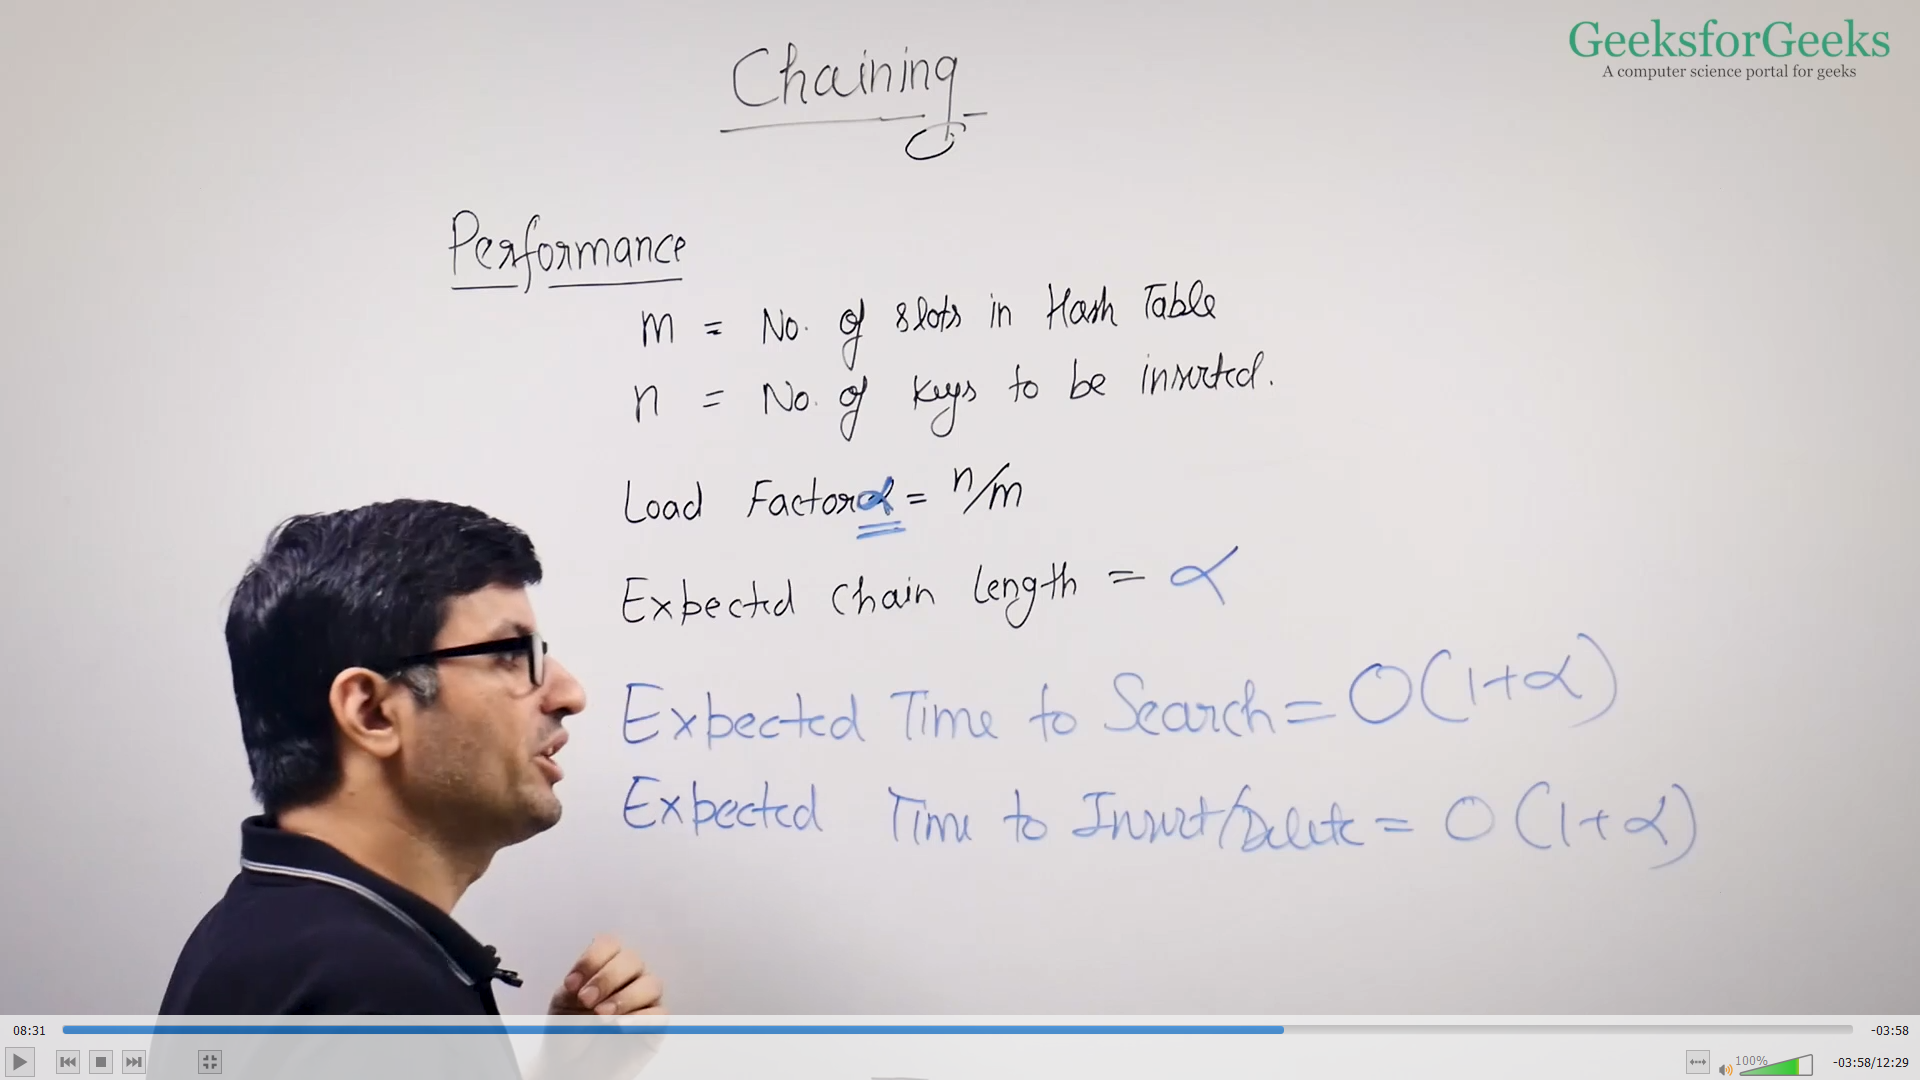 GeeksforGeeks
A computer science portal for geeks
Chaining
Performance
m = No. of slots in Hash Table
n = No. of keys to be inserted.
Load Factor α = n/m
Expected Chain Length = α
Expected Time to Search = O(1+α)
Expected Time to Insert/Delete = O(1+α)
08:31
-03:58
100%
-03:58/12:29